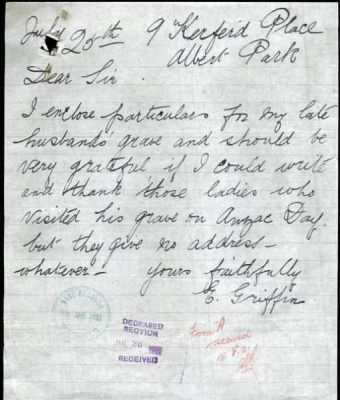 July 25th 9 Kerferd Place
Albert Park
Dear Sir
I enclose particulars for my late
husbands grave and should be
very grateful if I could write
and thank those ladies who
visited his grave on Anzac Day.
but they give no address –
whatever – yours faithfully
E. Griffin
DECEASED
SECTION
RECEIVED
Form A
received